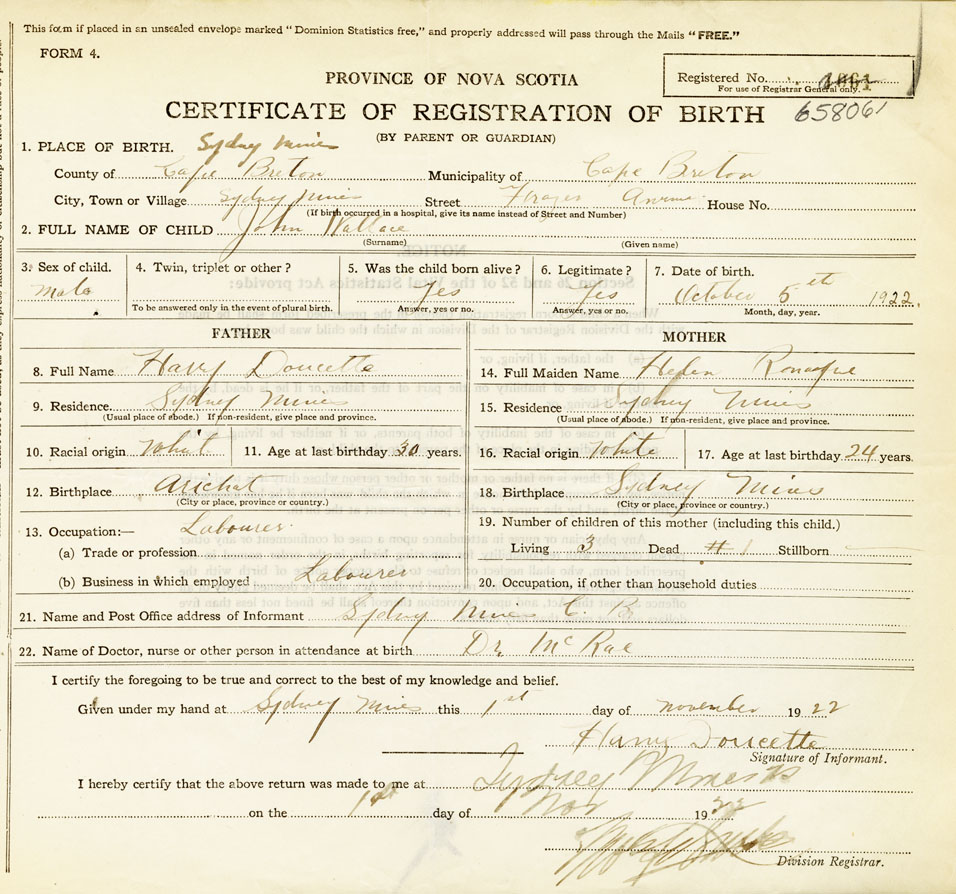 This form if placed in an unsealed envelope marked "Dominion Statistics free," and properly addressed will pass through the Mails "FREE."
FORM 4.
PROVINCE OF NOVA SCOTIA
Registered No.
For use of Registrar General only.
CERTIFICATE OF REGISTRATION OF BIRTH 658061
(BY PARENT OR GUARDIAN)
1. PLACE OF BIRTH. Sydney Mines
County of Cape Breton Municipality of Cape Breton
City, Town or Village Sydney Mines Street Frazer Avenue House No.
(If birth occurred in a hospital, give its name instead of Street and Number)
2. FULL NAME OF CHILD John Wallace
(Surname) (Given name)
3. Sex of child. Male
4. Twin, triplet or other?
To be answered only in the event of plural birth.
5. Was the child born alive? Yes
Answer, yes or no.
6. Legitimate? Yes
Answer, yes or no.
7. Date of birth.
October 5th 1922.
Month, day, year.
FATHER
8. Full Name Harry Doucette
9. Residence. Sydney Mines
(Usual place of abode.) If non-resident, give place and province.
10. Racial origin White 11. Age at last birthday 30 years.
12. Birthplace Arichat
(City or place, province or country.)
13. Occupation:— Labourer
(a) Trade or profession
(b) Business in which employed Labourer
MOTHER
14. Full Maiden Name Helen
15. Residence Sydney Mines
(Usual place of abode.) If non-resident, give place and province.
16. Racial origin White 17. Age at last birthday 24 years.
18. Birthplace Sydney Mines
(City or place, province or country.)
19. Number of children of this mother (including this child.)
Living 3 Dead 1 Stillborn
20. Occupation, if other than household duties
21. Name and Post Office address of Informant Sydney Mines C. B.
22. Name of Doctor, nurse or other person in attendance at birth Dr. McRae
I certify the foregoing to be true and correct to the best of my knowledge and belief.
Given under my hand at Sydney Mines this 1st day of November 1922
Harry Doucette
Signature of Informant.
I hereby certify that the above return was made to me at Sydney Mines
on the 1st day of Nov 1922
Division Registrar.